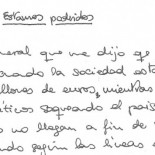 Estamos podridos
neral que me dijo que
nado la sociedad esta
llones de euros, mientras
íticos saqueando el país
no llegan a fin de
ndo según las líneas d